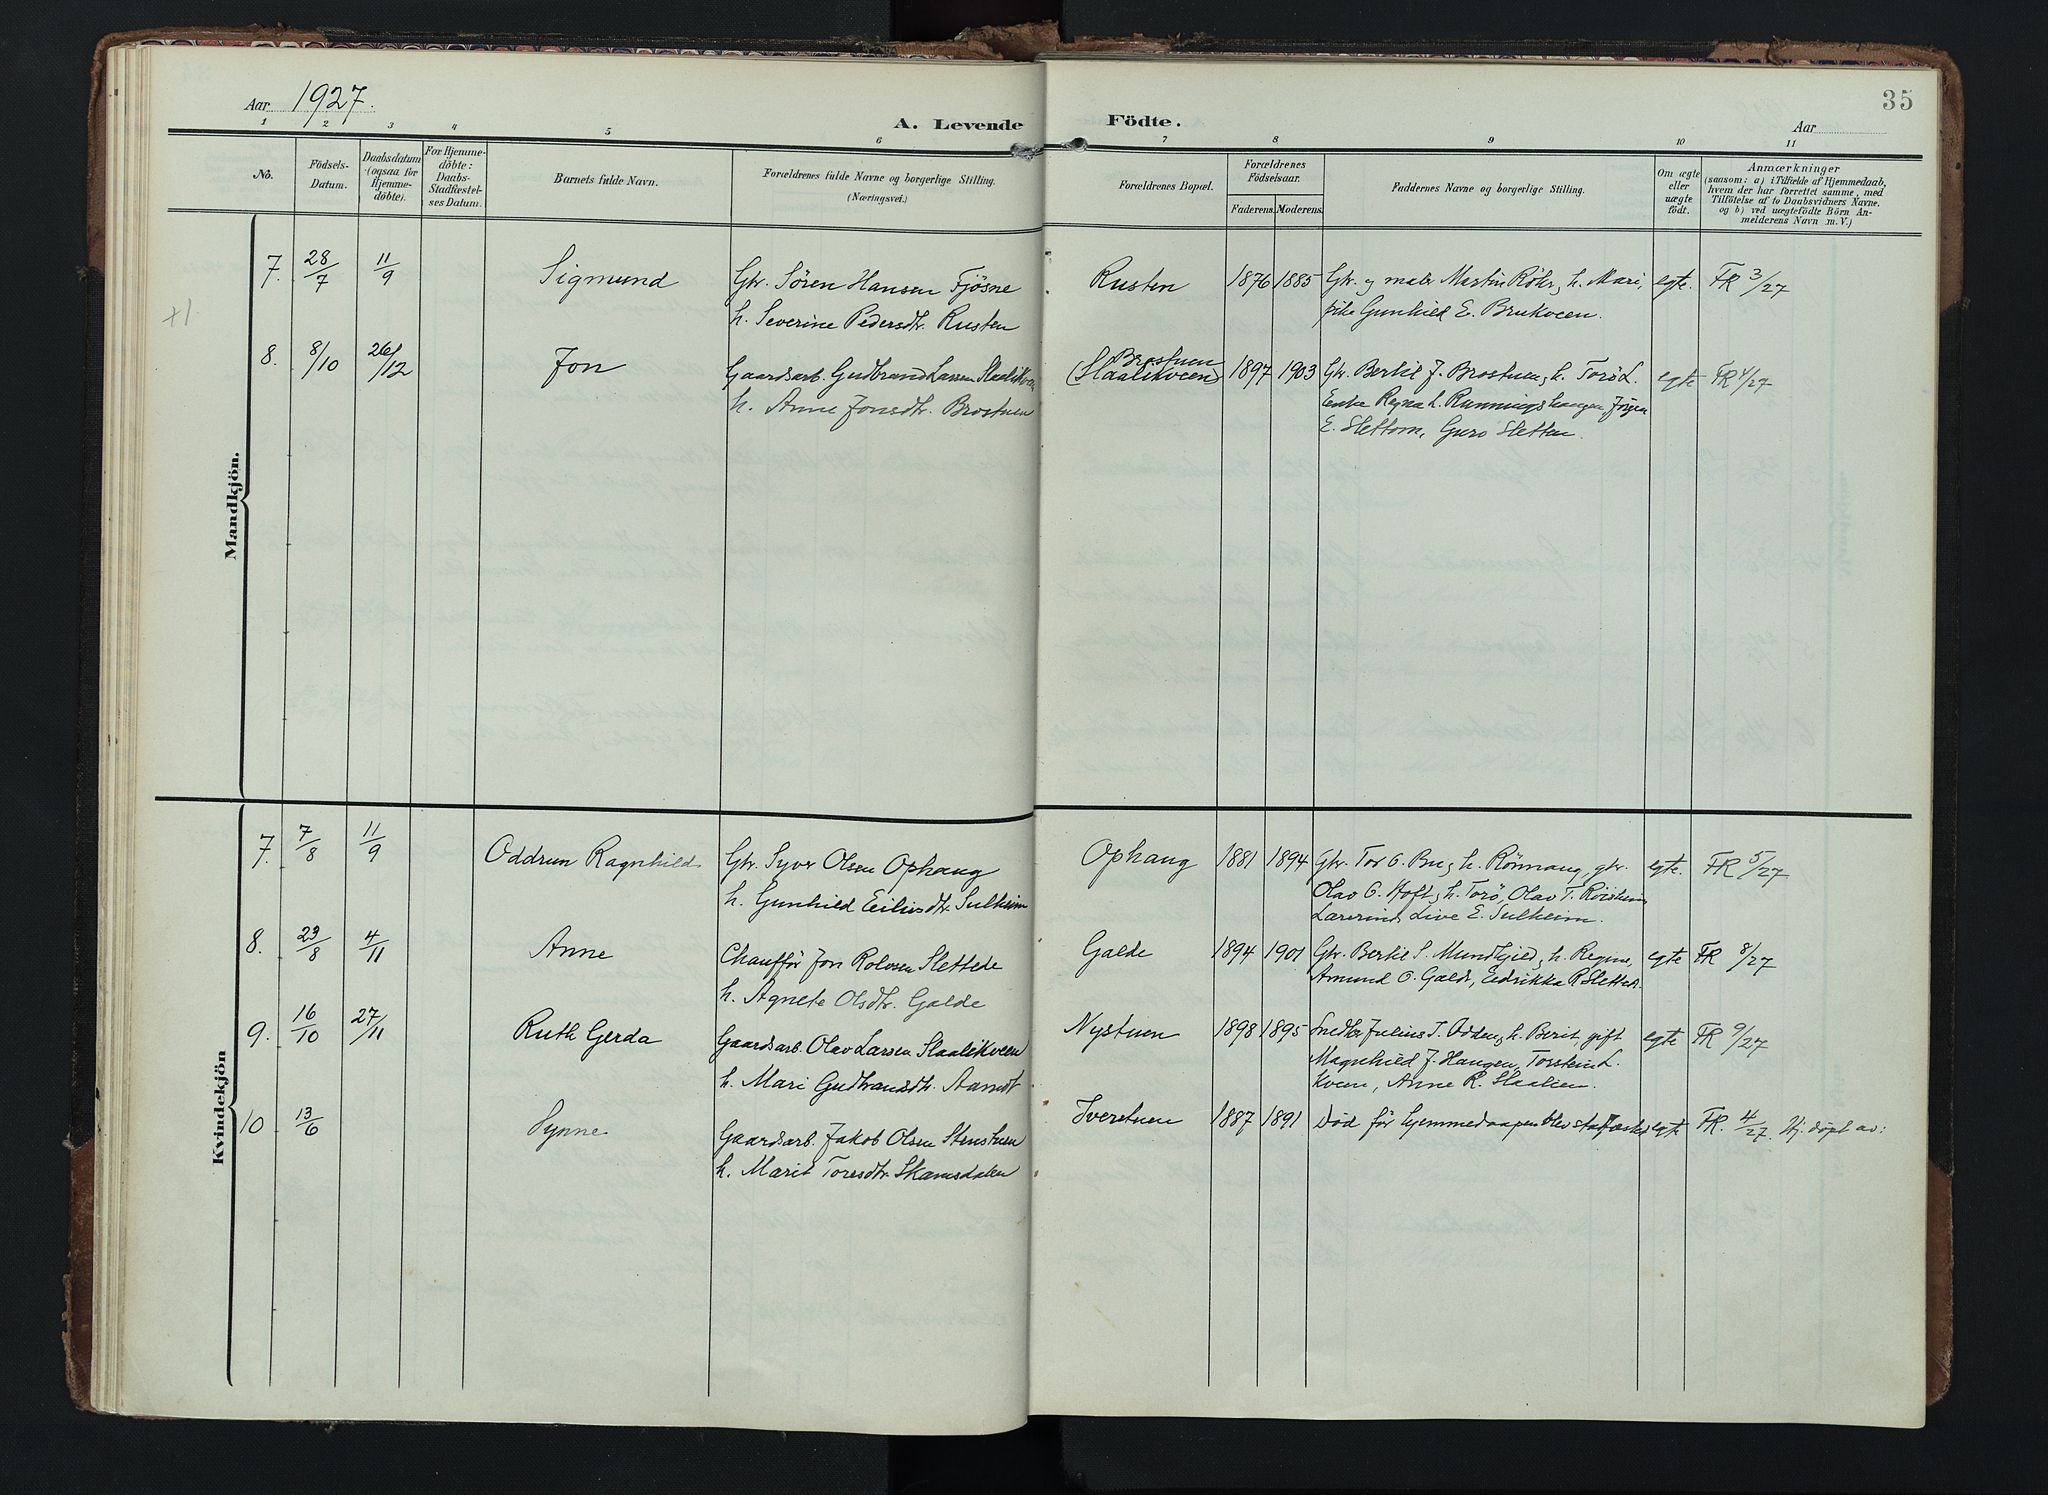 Aar 1927.
A. Levende Födte.
35
Aar
1 2 3 4 5 6 7 8 9 10 11
No.
Födsels-Datum.
Daabsdatum (ogsaa for Hjemmedöbte).
For Hjemmedöbte: Daabs-Stadfæstelses Datum.
Barnets fulde Navn.
Forældrenes fulde Navne og borgerlige Stilling.
(Næringsvei.)
Forældrenes Bopæl.
Forældrenes Födselsaar.
Faderens. Moderens.
Faddernes Navne og borgerlige Stilling.
Om ægte eller uægte födt.
Anmærkninger
(saasom: a) i Tilfælde af Hjemmedaab,
hvem der har forrettet samme, med
Tilföielse af to Daabsvidners Navne,
og b) ved uægtefödte Börn Anmelderens Navn m. V.)
Mandkjön.
7. 28/7 11/9 Sigmund Gbr. Sören Hansen Fjösne Rusten 1876 1885 Gbr. og maler Martin Röhr, h. Mari, egte. FR 3/27
h. Severine Pedersdtr. Rusten pike Gunhild E. Brukveen.
8. 8/10 26/12 Jon Gaardsarb. Gudbrand Larsen Slaalikveen Brostuen (Slaalikveen) 1897 1903 Gbr. Bertil J. Brostuen, h. Torö L. egte FR 4/27
h. Anne Jonsdtr. Brostuen Enke Regna L. Runningshaugen, Jörgen
E. Slettom, Guro Sletten.
Kvindekjön
7. 7/8 11/9 Oddrun Ragnhild Gbr. Syver Olsen Ophaug Ophaug 1881 1894 Gbr. Tor O. Bu, h. Rönnaug, gbr. egte. FR 5/27
h. Gunhild Eiliusdtr. Sulheim Olav O. Hoft, h. Torö, Olav T.
Lærerind. Live E. Sulheim.
8. 29/8 4/11 Anne Chaufför Jon Rolvsen Slettede Galde 1894 1901 Gbr. Bertil S. Mundhjeld, h. Regine, egte FR 8/27
h. Agnete Olsdtr. Galde Amund O. Galde, Eidrikka R.
9. 16/10 27/11 Ruth Gerda Gaardsarb. Olav Larsen Slaalikveen Nystuen 1898 1895 Snedker Julius T. Odden, h. Berit, gift egte FR 9/27
h. Mari Gudbrandsdtr. Aamot Magnhild J. Haugen, Torstein L.
Kveen, Anne R. Slaalien.
10 13/6 Synne Gaardsarb. Jakob Olsen Stenstuen Iverstuen 1887 1891 Död för hjemmedaapen blev stadfæstet egte FR. 4/27. Hj. döpt av:
h. Marit Toresdtr. Skamsdalen